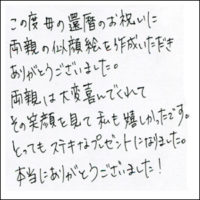 この度母の還暦のお祝いに
両親の似顔絵を作成いただき
ありがとうございました。
両親は大変喜んでくれて
その笑顔を見て私も嬉しかったです。
とってもステキなプレゼントになりました。
本当にありがとうございました!